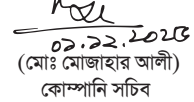 ০১.১২.২০২৫
(মোঃ মোজাহার আলী)
কোম্পানি সচিব